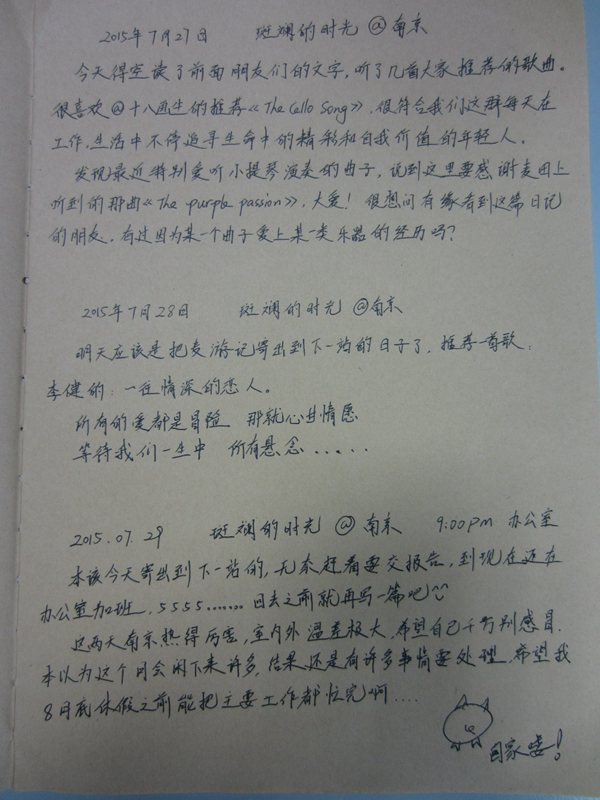 2015年7月27日 斑斓的时光 @南京
今天得空读了前面朋友们的文字，听了几首大家推荐的歌曲。
很喜欢@十八画生的推荐《The Cello Song》，很符合我们这群每天在
工作、生活中不停追寻生命中的精彩和自我价值的年轻人。
发现最近特别爱听小提琴演奏的曲子，说到这里要感谢麦田上
听到的那曲《The purple passion》，大爱！很想问有缘看到这篇日记
的朋友，有过因为某一个曲子爱上某一类乐器的经历吗？
2015年7月28日 斑斓的时光 @南京
明天应该是把麦游记寄出到下一站的日子了，推荐一首歌：
李健的：一往情深的恋人。
所有的爱都是冒险 那就心甘情愿
等待我们一生中 所有悬念......
2015.07.29 斑斓的时光 @南京 9:00pm 办公室
本该今天寄出到下一站的，无奈赶着要交报告，到现在还在
办公室加班，5555....... 回去之前就再写一篇吧
这两天南京热得厉害，室内外温差极大，希望自己千万别感冒.
本以为这个月会闲下来许多，结果还是有许多事情要处理.希望我
8月底休假之前能把主要工作都忙完啊....
回家喽！